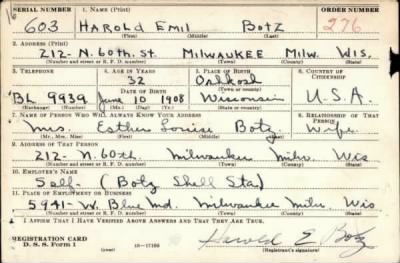 16
SERIAL NUMBER 1. NAME (Print) ORDER NUMBER
603 HAROLD EMIL BOTZ 276
(First) (Middle) (Last)
2. ADDRESS (Print)
212- N. 60TH. ST. MILWAUKEE MILW. WIS.
(Number and street or R. F. D. number) (Town) (County) (State)
3. TELEPHONE 4. AGE IN YEARS 5. PLACE OF BIRTH 6. COUNTRY OF CITIZENSHIP
32 Oshkosh
DATE OF BIRTH (Town or county)
BL 9939 June 10 1908 Wisconsin U.S.A.
(Exchange) (Number) (Mo.) (Day) (Yr.) (State or country)
7. NAME OF PERSON WHO WILL ALWAYS KNOW YOUR ADDRESS 8. RELATIONSHIP OF THAT PERSON
Mrs. Esther Louise Botz Wife
(Mr., Mrs., Miss) (First) (Middle) (Last)
9. ADDRESS OF THAT PERSON
212- N. 60th. Milwaukee Milw Wis
(Number and street or R. F. D. number) (Town) (County) (State)
10. EMPLOYER'S NAME
Self- (Botz Shell Sta)
11. PLACE OF EMPLOYMENT OR BUSINESS
5941- W. Blue Md. Milwaukee Milw. Wis
(Number and street or R. F. D. number) (Town) (County) (State)
I AFFIRM THAT I HAVE VERIFIED ABOVE ANSWERS AND THAT THEY ARE TRUE.
REGISTRATION CARD
D. S. S. Form 1 16-17105 Harold E. Botz
(Registrant's signature)